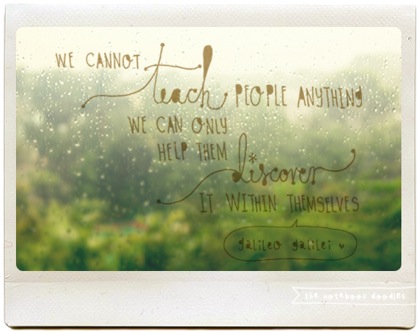 WE CANNOT
teach PEOPLE ANYTHING
WE CAN ONLY
HELP THEM
discover
IT WITHIN THEMSELVES
galileo galilei
the notebook doodles